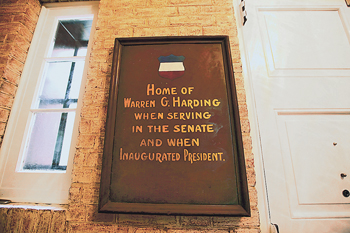 Home of
Warren G. Harding
when serving
in the Senate
and when
Inaugurated President.